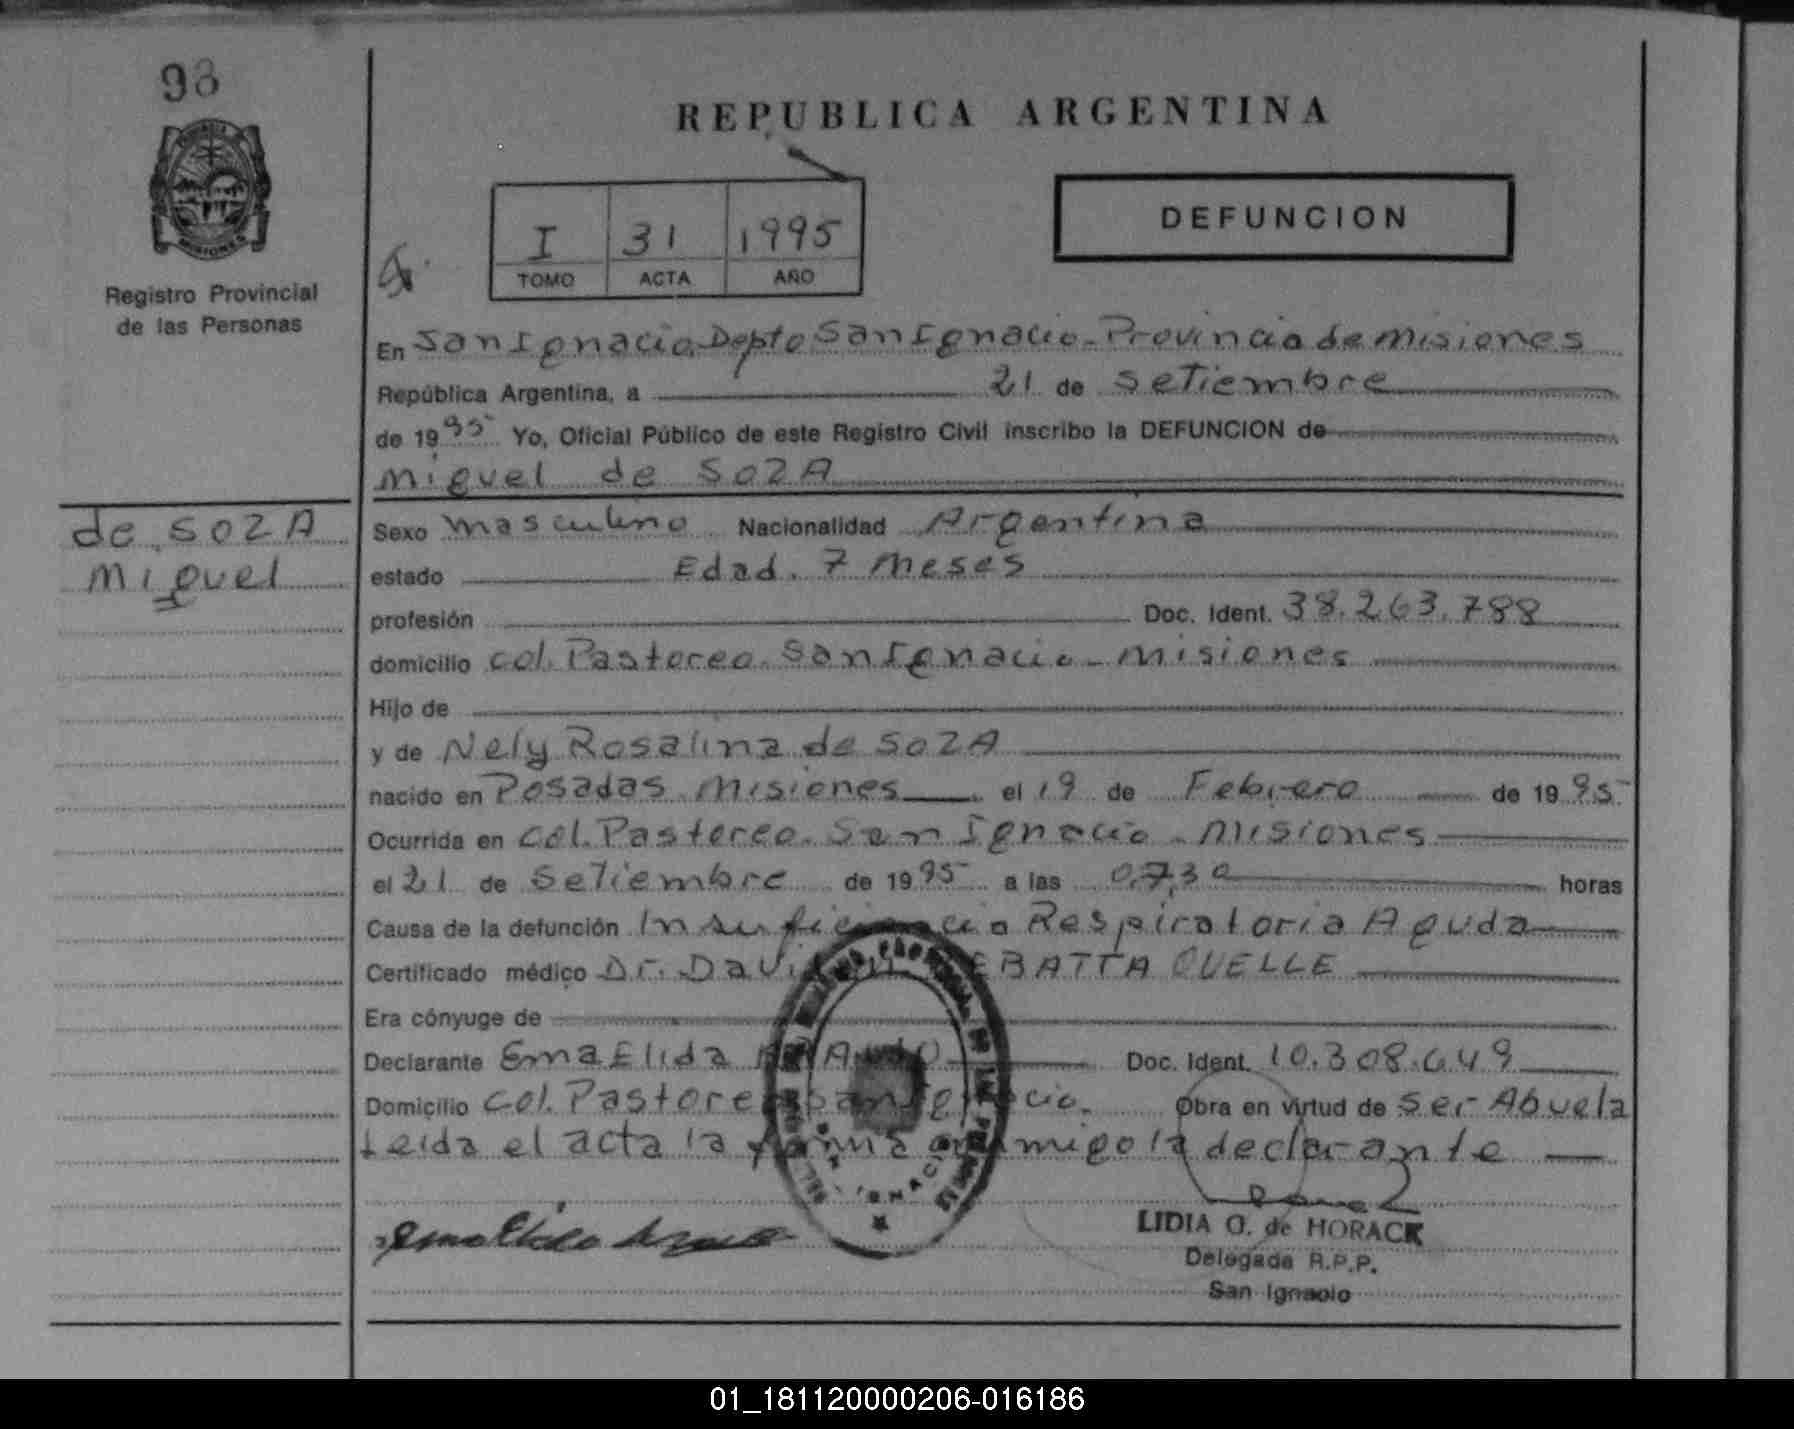 98
REPUBLICA ARGENTINA
I 31 1995
TOMO ACTA AÑO
DEFUNCION
MISIONES
Registro Provincial
de las Personas
En San Ignacio Depto San Ignacio - Provincia de Misiones
República Argentina, a 21 de Setiembre
de 1995 Yo, Oficial Público de este Registro Civil inscribo la DEFUNCION de
Miguel de SOZA
de SOZA
Miguel
Sexo Masculino Nacionalidad Argentina
estado Edad. 7 Meses
profesión Doc. Ident. 38.263.788
domicilio Col. Pastoreo. San Ignacio - Misiones
Hijo de
y de Nely Rosalina de SOZA
nacido en Posadas Misiones el 19 de Febrero de 1995
Ocurrida en Col. Pastoreo. San Ignacio - Misiones
el 21 de Setiembre de 1995 a las 07,30 horas
Causa de la defunción Insuficiencia Respiratoria Aguda
Certificado médico Dr. David BATTA OUELLE
Era cónyuge de
Declarante Ema Elida Doc. Ident. 10.308.649
Domicilio Col. Pastoreo San Ignacio. Obra en virtud de Ser Abuela
Leida el acta la firma conmigo la declarante
LIDIA O. de HORACK
Delegada R.P.P.
San Ignacio
01_181120000206-016186